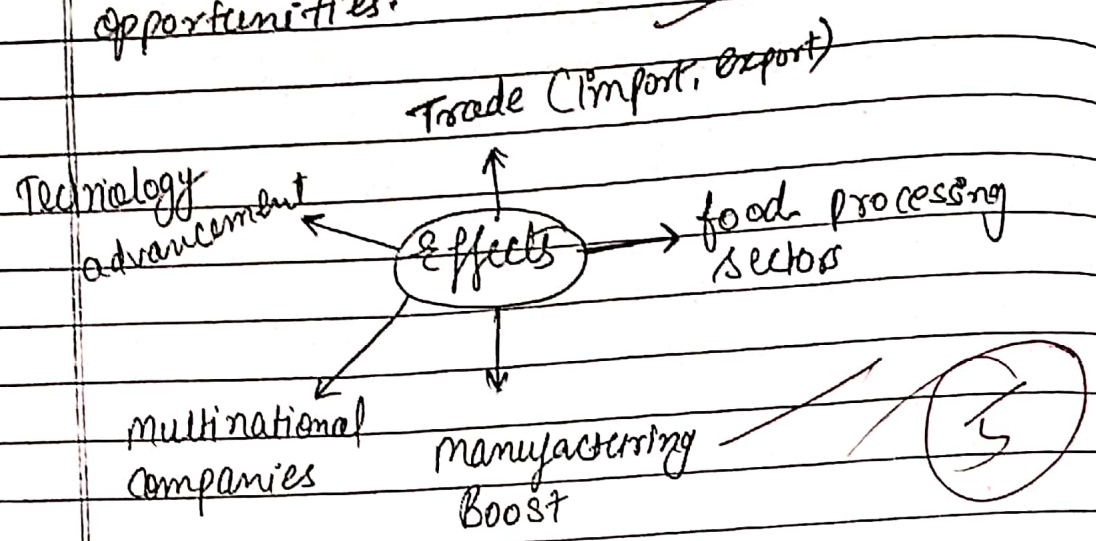 opportunities.
Trade (Import, export)
Technology
advancement
Effects
food processing
sectors
multinational
companies
manufacturing
Boost
5